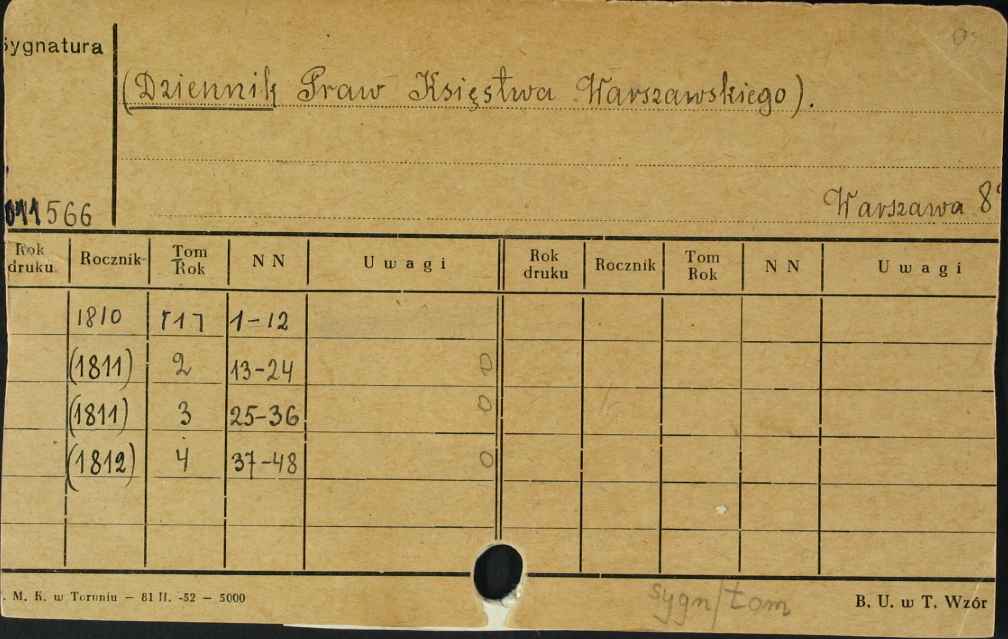 Sygnatura
(Dziennik Praw Księstwa Warszawskiego).
Warszawa 8°
011566
Rok druku Rocznik Tom Rok NN Uwagi Rok druku Rocznik Tom Rok NN Uwagi
1810 [1] 1-12
(1811) 2 13-24 0
(1811) 3 25-36 0
(1812) 4 37-48 0
. M. K. w Toruniu — 81 II. -52 — 5000
sygn/tom
B. U. w T. Wzór